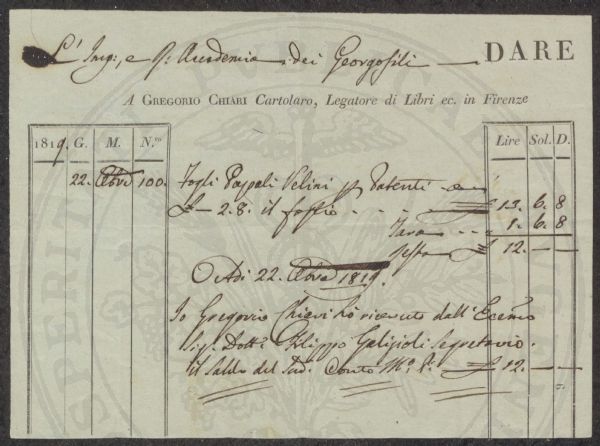 L'Imp:, e R: Accademia dei Georgofili — DARE
A GREGORIO CHIARI Cartolaro, Legatore di Libri ec. in Firenze
1819. G. M. N.ro Lire Sol. D.
22. 100. Fogli Papali Velini p Patenti
£ — 2.8. il foglio - - - £ 13. 6. 8
Tara - - 1. 6. 8
resta £ 12. — —
Adi 22. 1819.
Io Gregorio Chiari hò ricevuto dall'Ecc:mo
Sig: Dott: Filippo Gallizioli Segretario.
il Saldo del Sud. Conto £ 12. — —